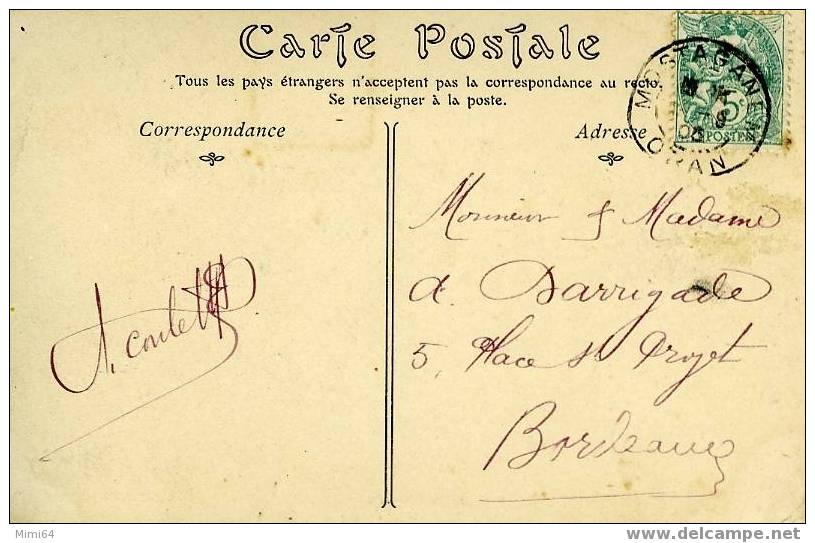 Carte Postale
Tous les pays étrangers n'acceptent pas la correspondance au recto.
Se renseigner à la poste.
Correspondance
Adresse
MOSTAGANEM
ORAN
5
POSTES
Monsieur & Madame
A. Darrigade
5, Place St Projet
Bordeaux
A. Coulet
Mimi64
delcampe.net